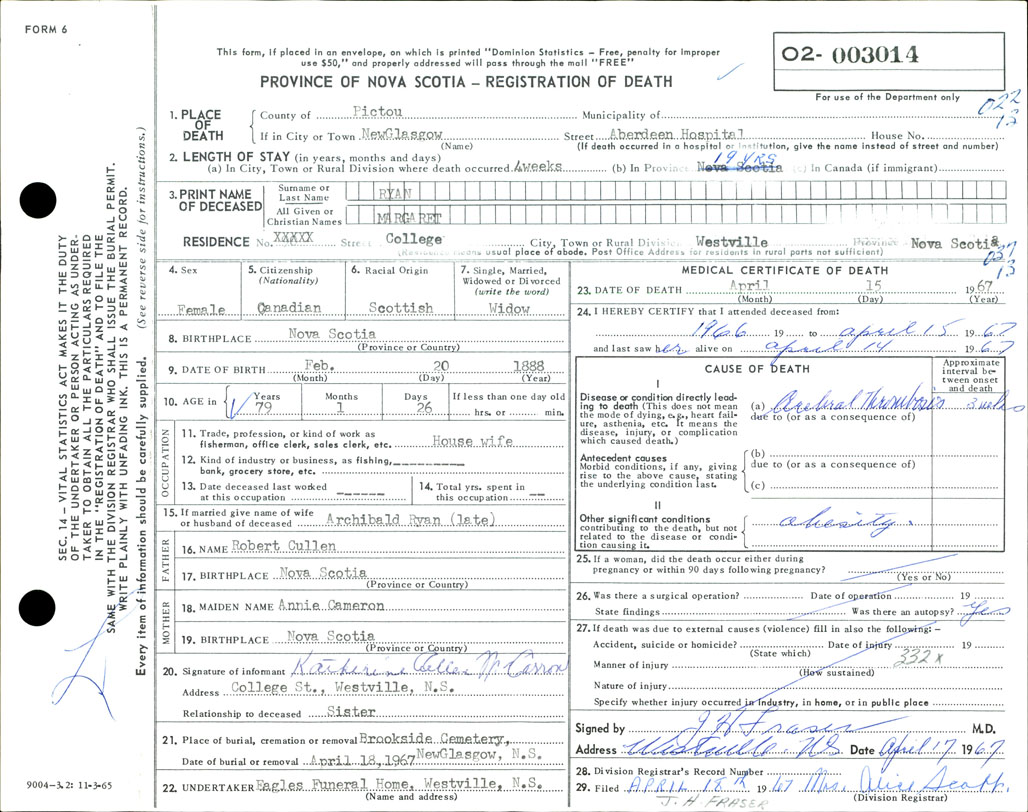 FORM 6
This form, if placed in an envelope, on which is printed "Dominion Statistics - Free, penalty for improper
use $50," and properly addressed will pass through the mail "FREE"
PROVINCE OF NOVA SCOTIA - REGISTRATION OF DEATH
02- 003014
For use of the Department only
022
13
1. PLACE OF DEATH
County of Pictou Municipality of
If in City or Town NewGlasgow Street Aberdeen Hospital House No.
(Name) (If death occurred in a hospital or institution, give the name instead of street and number)
2. LENGTH OF STAY (in years, months and days) 19 YRS
(a) In City, Town or Rural Division where death occurred 4weeks (b) In Province Nova Scotia (c) In Canada (if immigrant)
3. PRINT NAME OF DECEASED
Surname or Last Name RYAN
All Given or Christian Names MARGARET
RESIDENCE No. XXXXX Street College City, Town or Rural Division Westville Province Nova Scotia
(Residence means usual place of abode. Post Office Address for residents in rural parts not sufficient)
037
13
4. Sex
Female
5. Citizenship
(Nationality)
Canadian
6. Racial Origin
Scottish
7. Single, Married,
Widowed or Divorced
(write the word)
Widow
8. BIRTHPLACE Nova Scotia
(Province or Country)
9. DATE OF BIRTH Feb. 20 1888
(Month) (Day) (Year)
10. AGE in Years Months Days If less than one day old
79 1 26 hrs. or min.
OCCUPATION
11. Trade, profession, or kind of work as
fisherman, office clerk, sales clerk, etc. House wife
12. Kind of industry or business, as fishing,
bank, grocery store, etc.
13. Date deceased last worked
at this occupation -----
14. Total yrs. spent in
this occupation --
15. If married give name of wife
or husband of deceased Archibald Ryan (late)
FATHER
16. NAME Robert Cullen
17. BIRTHPLACE Nova Scotia
(Province or Country)
MOTHER
18. MAIDEN NAME Annie Cameron
19. BIRTHPLACE Nova Scotia
(Province or Country)
20. Signature of informant Katherine Cullen McCarron
Address College St., Westville, N.S.
Relationship to deceased Sister
21. Place of burial, cremation or removal Brookside Cemetery,
Date of burial or removal April 18,1967 NewGlasgow, N.S.
22. UNDERTAKER Eagles Funeral Home, Westville, N.S.
(Name and address)
MEDICAL CERTIFICATE OF DEATH
23. DATE OF DEATH April 15 1967
(Month) (Day) (Year)
24. I HEREBY CERTIFY that I attended deceased from:
1966 19 to april 15 1967
and last saw her alive on april 14 1967
CAUSE OF DEATH
Approximate
interval be-
tween onset
and death
I
Disease or condition directly lead-
ing to death (This does not
mean the mode of dying, e.g., heart fail-
ure, asthenia, etc. It means the
disease, injury, or complication
which caused death.)
(a) Cerebral Thrombosis 3 weeks
due to (or as a consequence of)
Antecedent causes
Morbid conditions, if any, giving
rise to the above cause, stating
the underlying condition last.
(b)
due to (or as a consequence of)
(c)
II
Other significant conditions
contributing to the death, but not
related to the disease or condi-
tion causing it.
obesity.
25. If a woman, did the death occur either during
pregnancy or within 90 days following pregnancy?
(Yes or No)
26. Was there a surgical operation? Date of operation 19
State findings Was there an autopsy? Yes
27. If death was due to external causes (violence) fill in also the following: -
Accident, suicide or homicide? Date of injury 19
(State which)
332 x
Manner of injury
(How sustained)
Nature of injury
Specify whether injury occurred in industry, in home, or in public place
Signed by J H Fraser M.D.
Address Westville N.S Date April 17 1967
28. Division Registrar's Record Number
29. Filed APRIL 18th 1967 Mrs. Alice Scott
J. H FRASER (Division Registrar)
SEC. 14-VITAL STATISTICS ACT MAKES IT THE DUTY
OF THE UNDERTAKER OR PERSON ACTING AS UNDER-
TAKER TO OBTAIN ALL THE PARTICULARS REQUIRED
IN THE "REGISTRATION OF DEATH" AND TO FILE THE
SAME WITH THE DIVISION REGISTRAR WHO SHALL ISSUE THE BURIAL PERMIT.
WRITE PLAINLY WITH UNFADING INK. THIS IS A PERMANENT RECORD.
Every item of information should be carefully supplied. (See reverse side for instructions.)
9004-3.2: 11-3-65